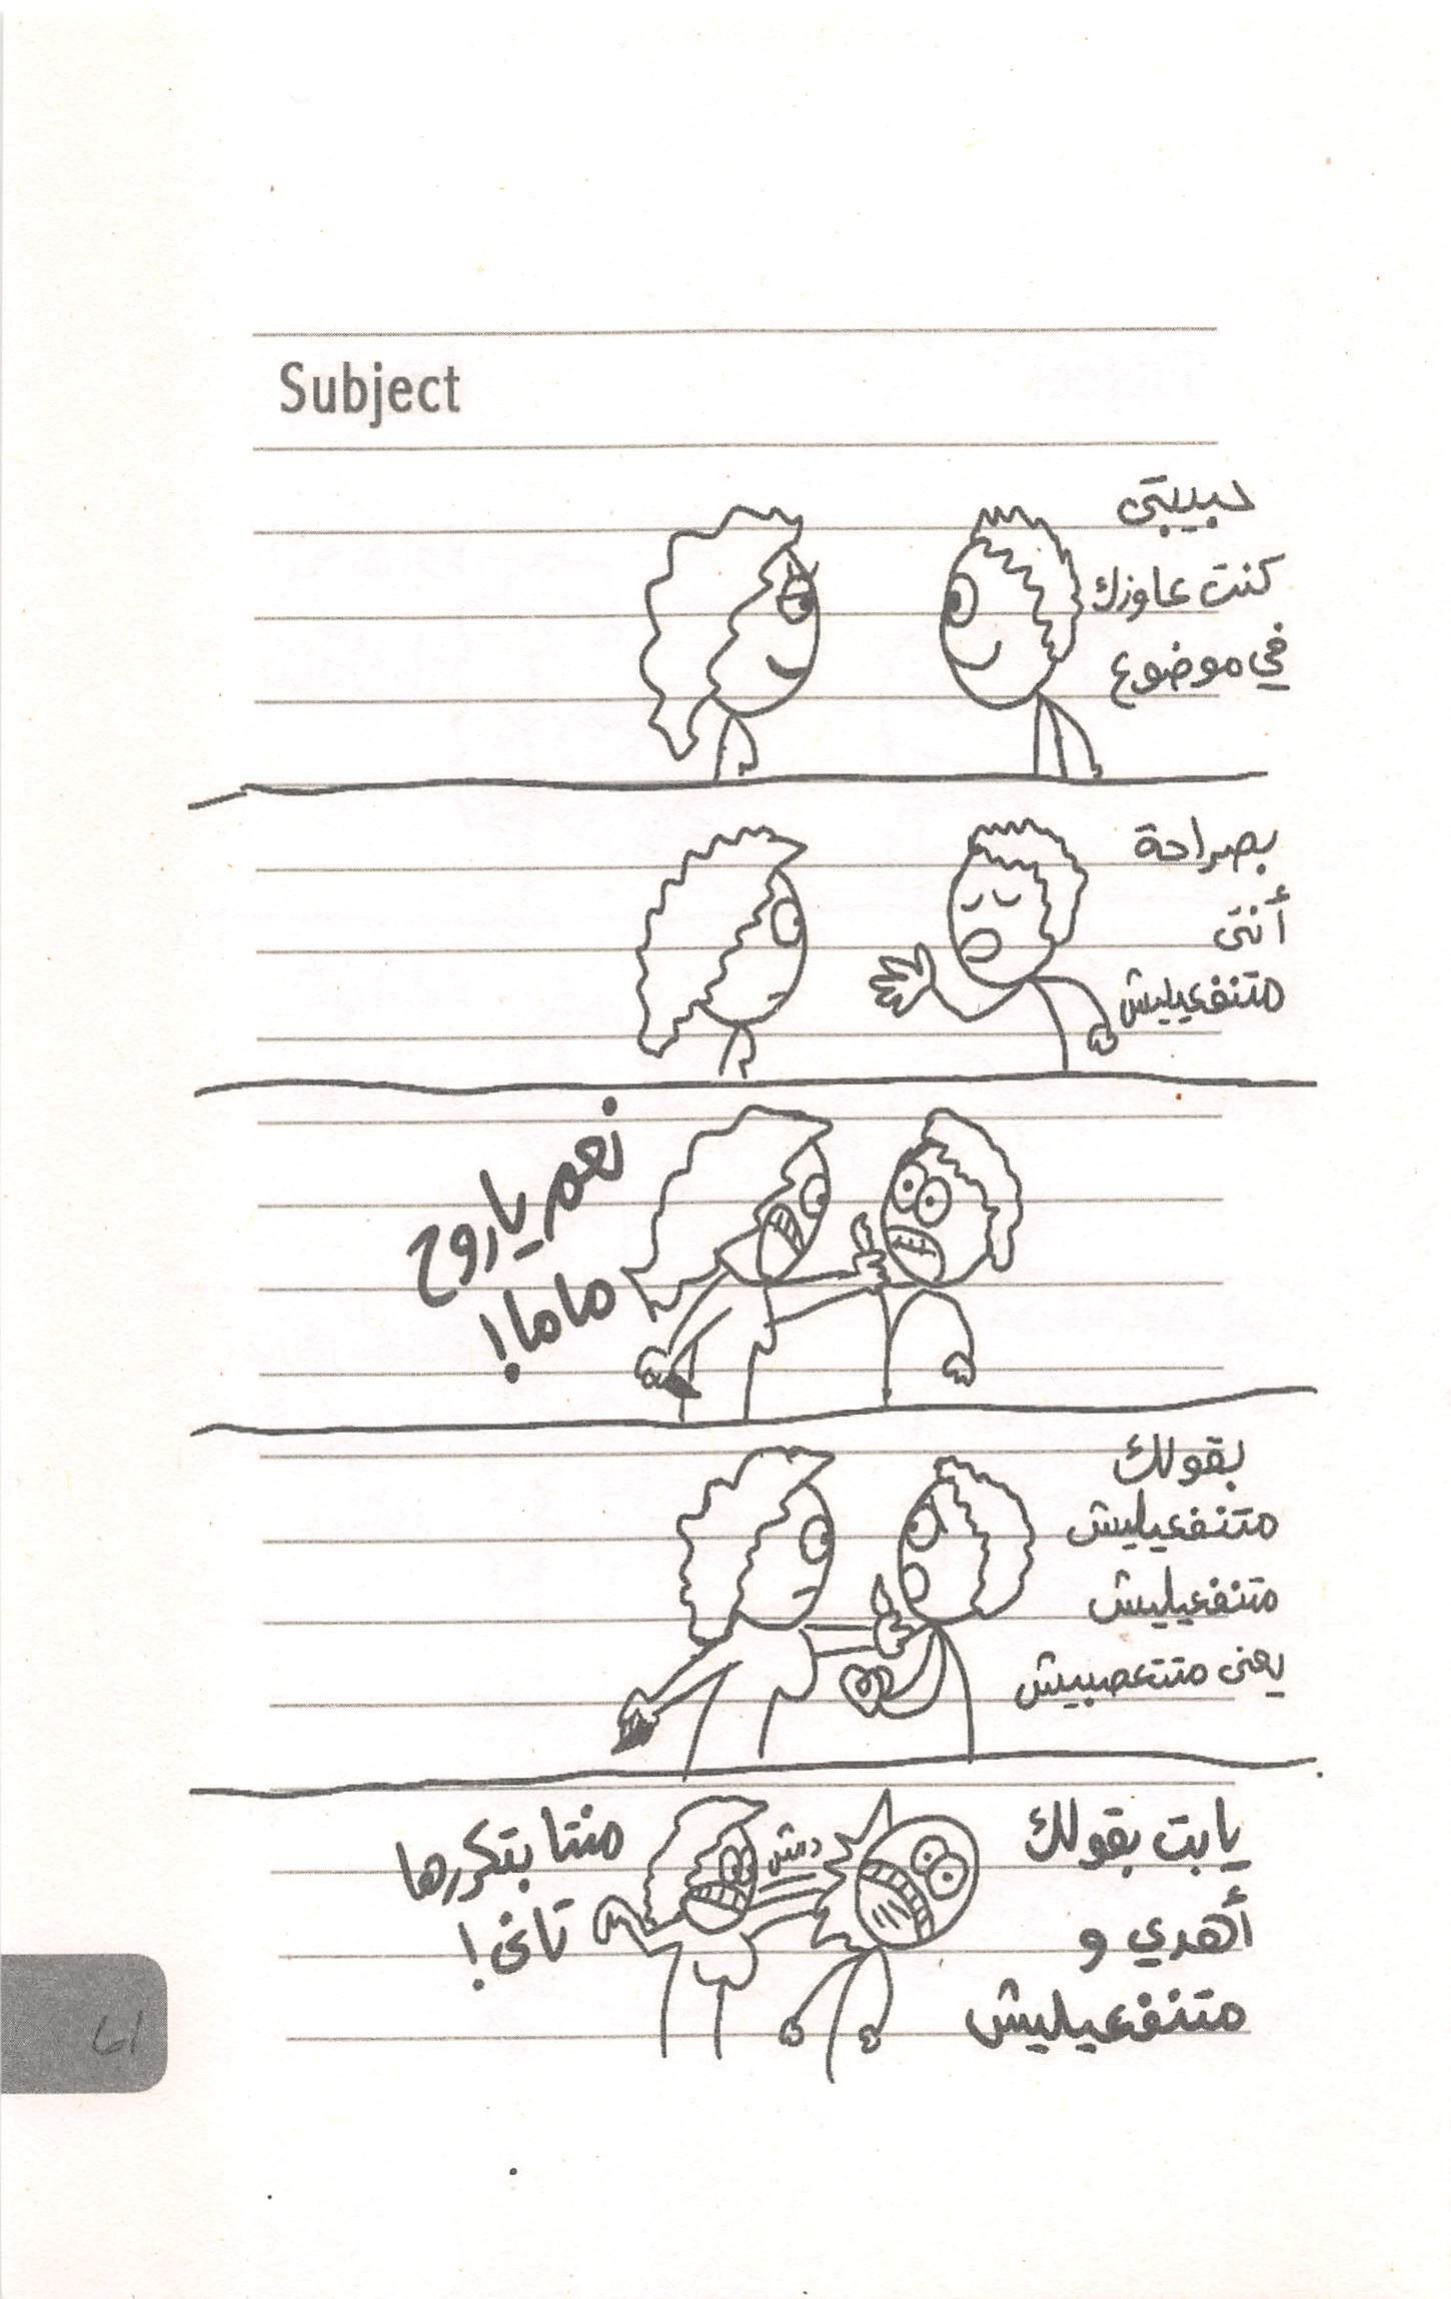 Subject
حبيبتى
كنت عاوزك
في موضوع
بصراحة
أنتى
متنفعيليش
نعم ياروح
ماما!
بقولك
متنفعيليش
متنفعيليش
يعنى متتعصبيش
يابت بقولك
أهدي و
متنفعيليش
دش
منتا بتكررها
تانى!
61